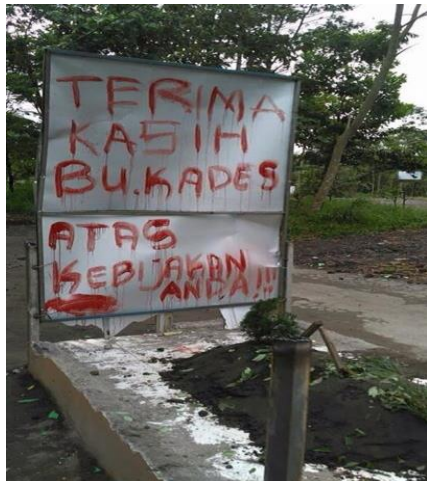 TERIMA
KASIH
BU.KADES
ATAS
KEBIJAKAN
ANDA!!!